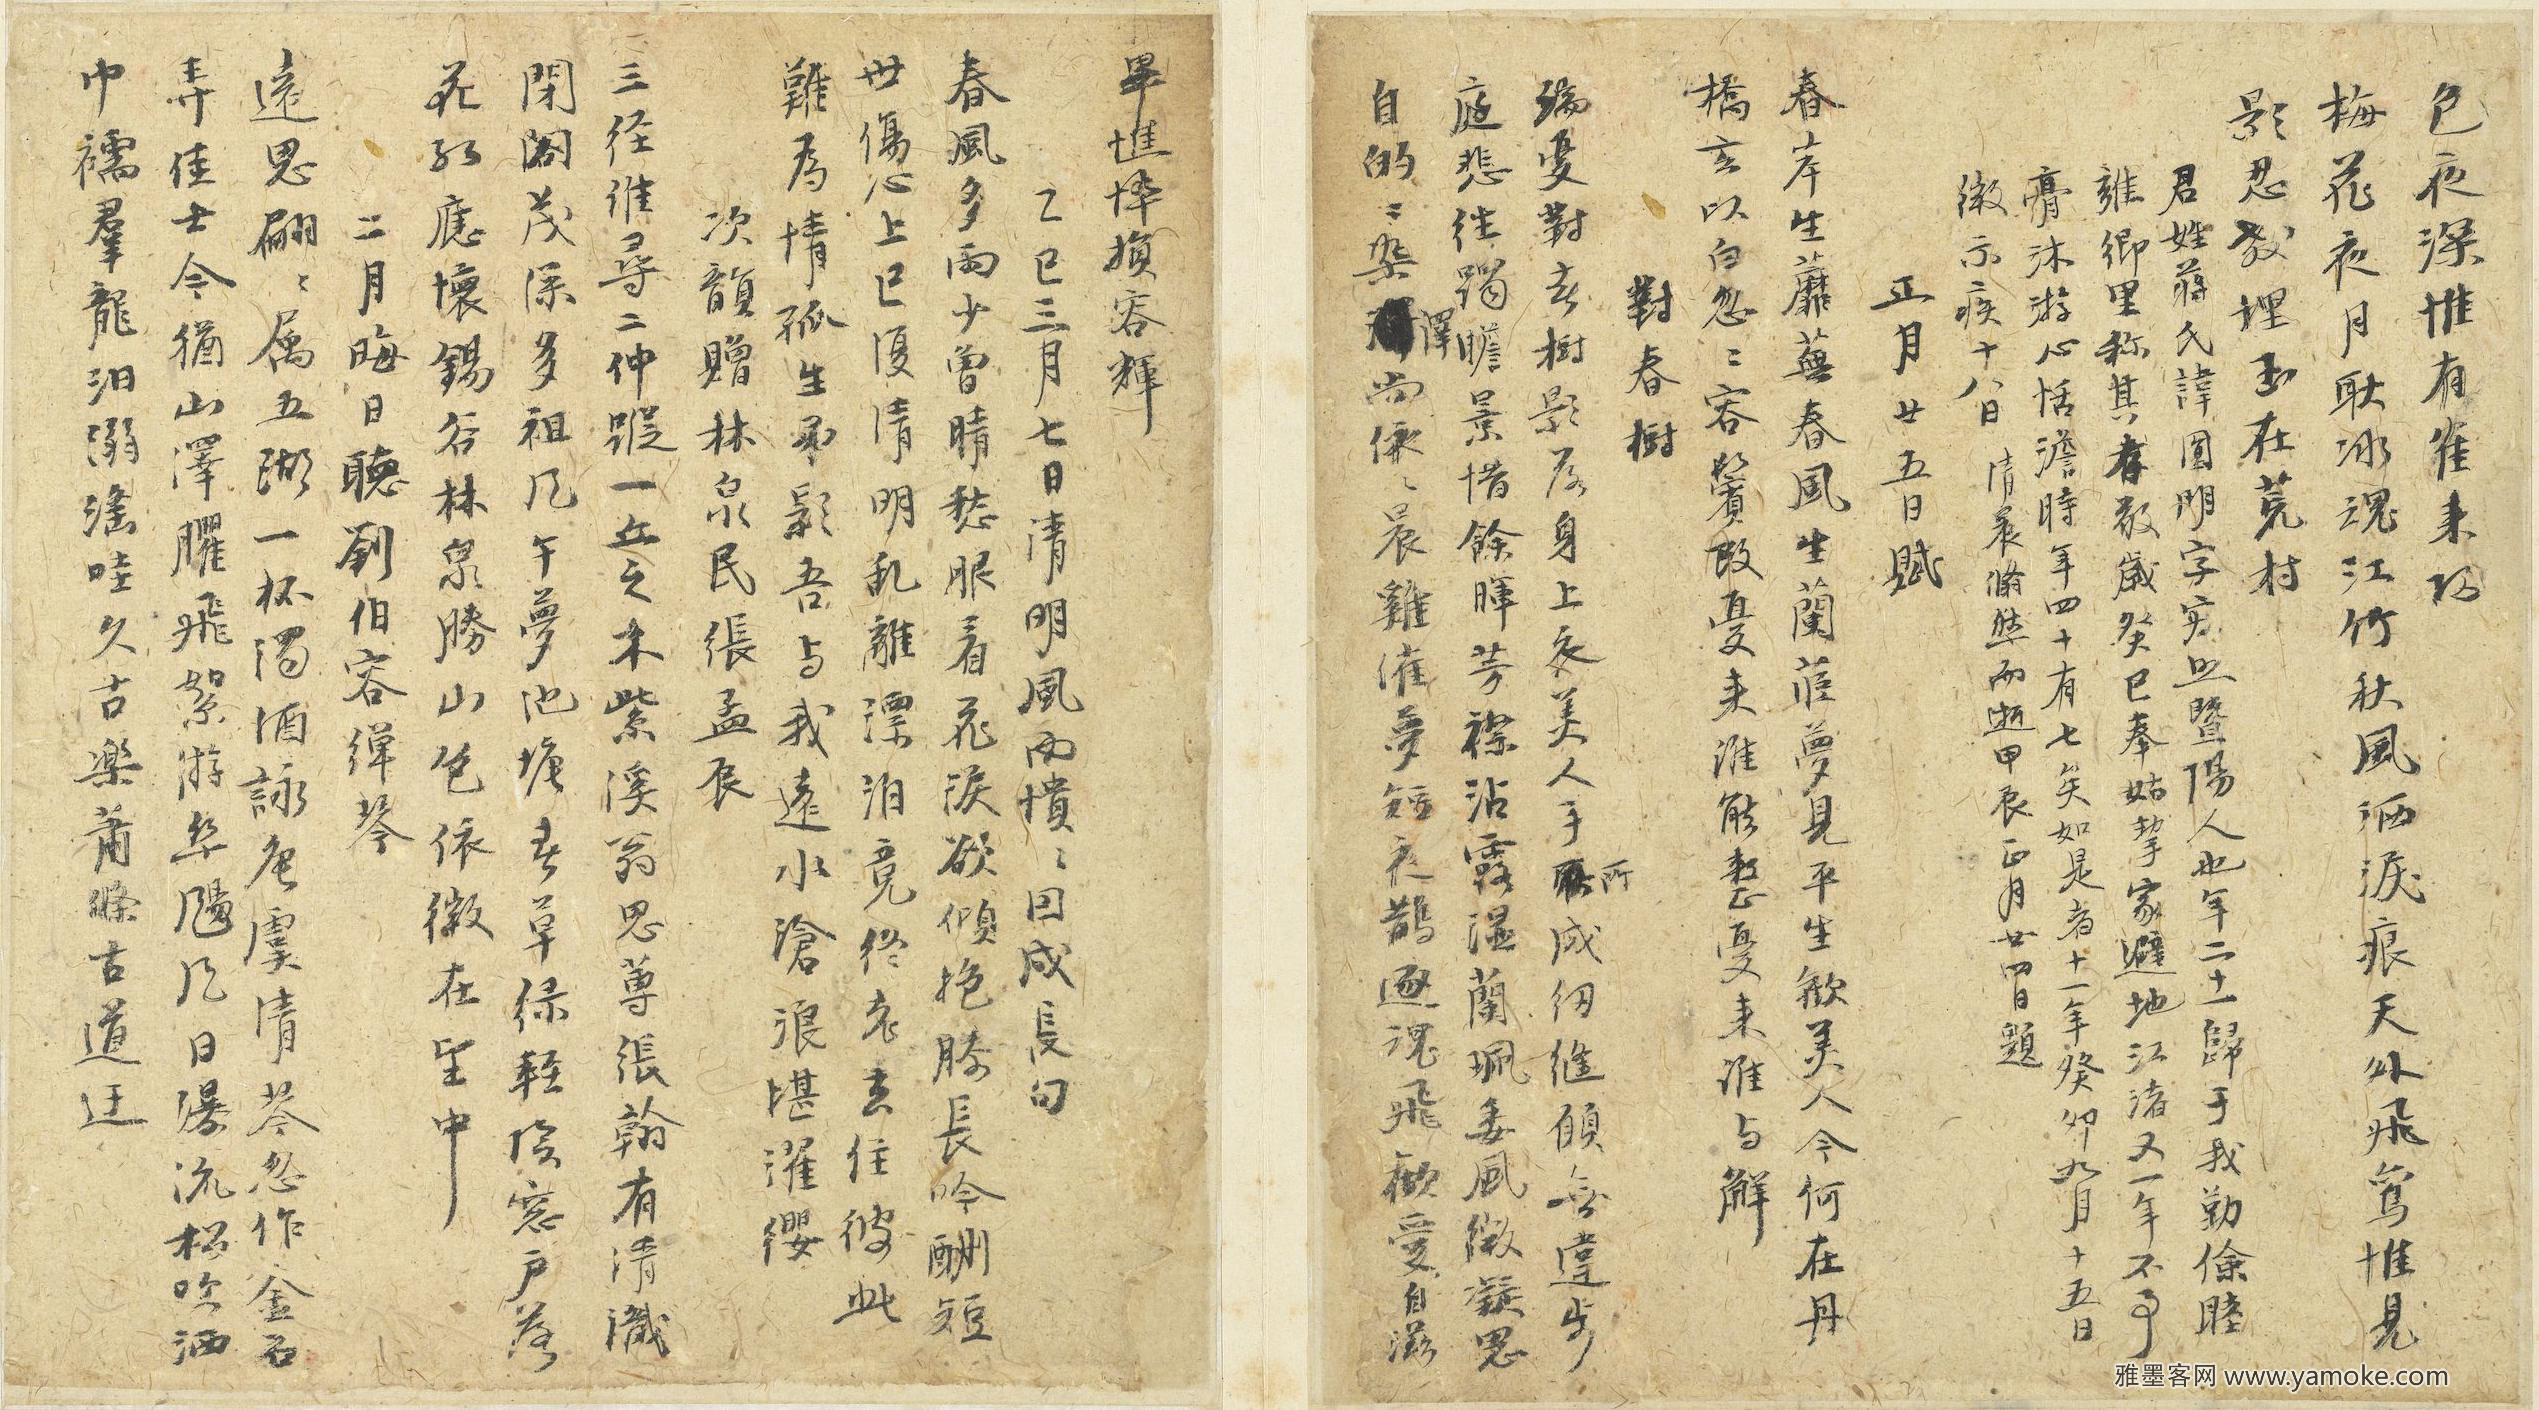 色夜深惟有雀来翔
梅花夜月耿冰魂江竹秋風洒淚痕天外飛鸞惟見
影忍教埋玉在荒村
君姓蔣氏諱圓明字寂照暨陽人也年二十一歸于我勤儉睦
雍鄉里称其孝敬歲癸巳奉姑挈家避地江渚又一年不事
膏沐游心恬澹時年四十有七矣如是者十一年癸卯九月十五日
微示疾十八日清晨翛然而逝甲辰正月廿四日題
正月廿五日賦
春岸生蘼蕪春風生蘭茝夢見平生歡美人今何在丹
橋玄以白忽〻容鬢改憂来誰能整憂来誰与解
對春樹
端憂對春樹影落身上衣美人手所成紉縫願無違步
庭悲往躅瞻景惜餘暉芳襟沾露湿蘭珮委風微凝思
自的〻染澤尚依〻晨雞催夢短夜鵲逐魂飛歡愛自滋
畢憔悴損容輝
乙巳三月七日清明風雨憒〻因成長句
春風多雨少曾晴愁眼看花淚欲傾抱膝長吟酬短
世傷心上巳復清明乱離漂泊竟終老去住彼此
難為情孤生弔影吾与我遠水滄浪堪濯纓
次韻贈林泉民張孟辰
三径誰尋二仲蹤一丘之来紫溪翁思蓴張翰有清識
閉閣茂深多祖風午夢池塘春草綠輕陰窓戶落
花紅應懷錫谷林泉勝山色依微在望中
二月晦日聽劉伯容彈琴
遠思翩〻屬五湖一杯濁酒詠唐虞清琴忽作金石
弄佳士今猶山澤臞飛絮游絲颺風日瀑流松吹洒
巾襦羣龍汩溺滛哇久古樂蕭條古道迂
雅墨客网 www.yamoke.com